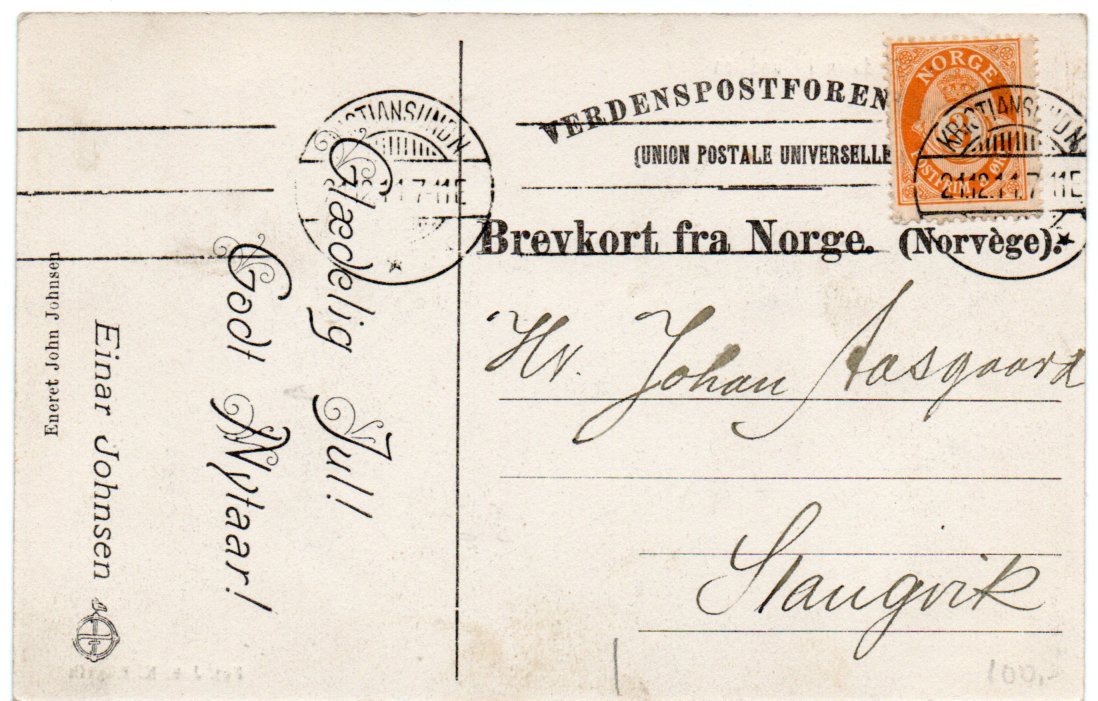 VERDENSPOSTFOREN
(UNION POSTALE UNIVERSELLE
Brevkort fra Norge. (Norvège).
NORGE
KRISTIANSUND N
21.12.11.7-11E
Hr. Johan Aasgaard
Stangvik
Glædelig Jul!
Godt Nytaar!
Einar Johnsen
Eneret John Johnsen
100,-